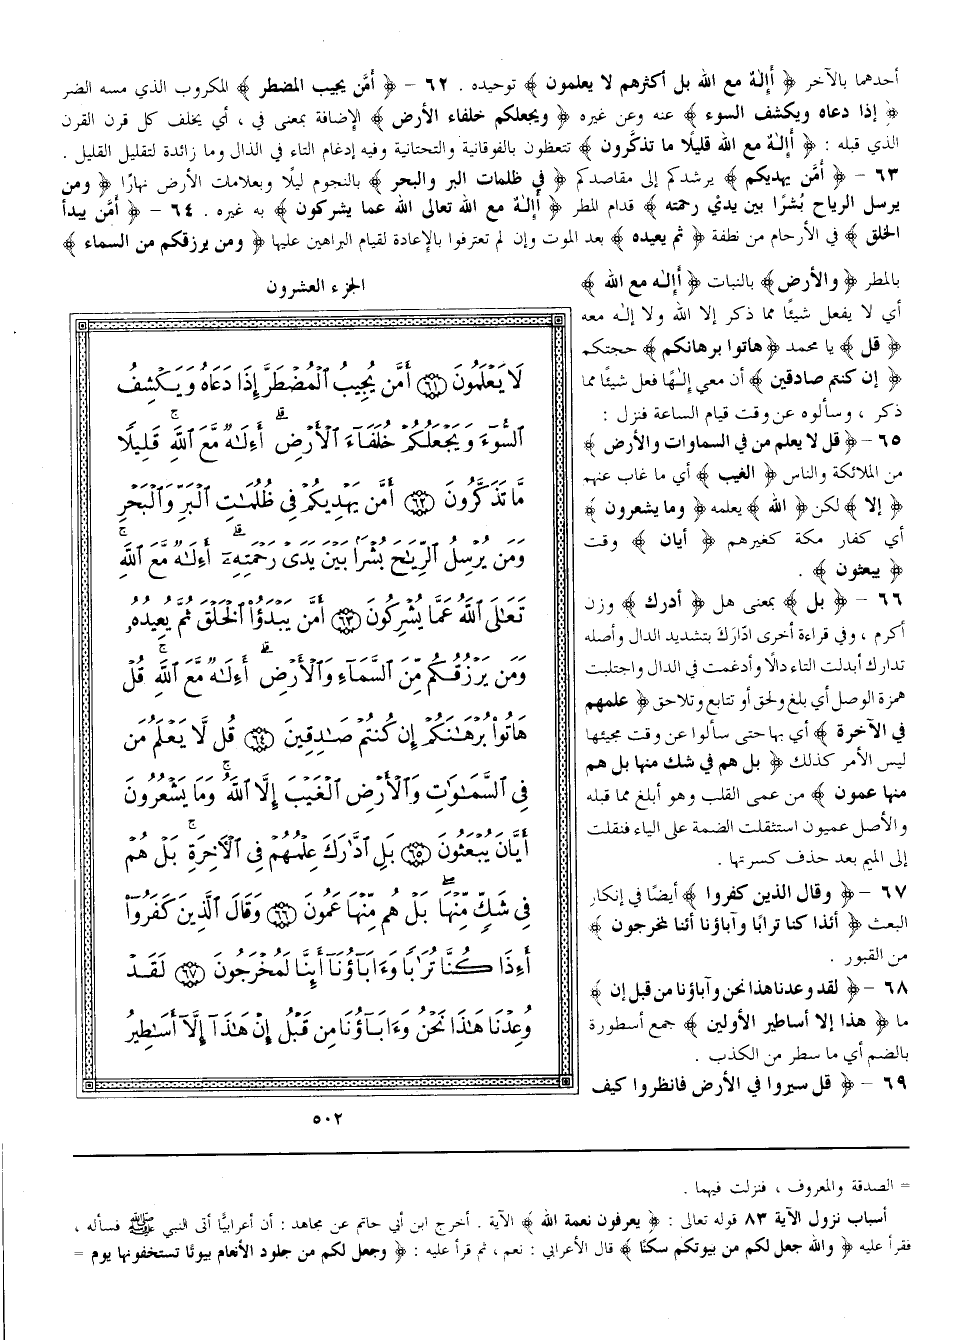 أحدهما بالآخر ﴿ أإلٰهٌ مع الله بل أكثرهم لا يعلمون ﴾ توحيده . ٦٢ – ﴿ أمَّن يجيب المضطر ﴾ المكروب الذي مسه الضر
﴿ إذا دعاه ويكشف السوء ﴾ عنه وعن غيره ﴿ ويجعلكم خلفاء الأرض ﴾ الإضافة بمعنى في ، أي يخلف كل قرن القرن
الذي قبله : ﴿ أإلٰهٌ مع الله قليلًا ما تذكَّرون ﴾ تتعظون بالفوقانية والتحتانية وفيه إدغام التاء في الذال وما زائدة لتقليل القليل .
٦٣ – ﴿ أمَّن يهديكم ﴾ يرشدكم إلى مقاصدكم ﴿ في ظلمات البر والبحر ﴾ بالنجوم ليلًا وبعلامات الأرض نهارًا ﴿ ومن
يرسل الرياح بُشرًا بين يديْ رحمته ﴾ قدام المطر ﴿ أإلٰهٌ مع الله تعالى الله عما يشركون ﴾ به غيره . ٦٤ – ﴿ أمَّن يبدأ
الخلق ﴾ في الأرحام من نطفة ﴿ ثم يعيده ﴾ بعد الموت وإن لم تعترفوا بالإعادة لقيام البراهين عليها ﴿ ومن يرزقكم من السماء ﴾
بالمطر ﴿ والأرض ﴾ بالنبات ﴿ أإلٰه مع الله ﴾
أي لا يفعل شيئًا مما ذكر إلا الله ولا إلٰه معه
﴿ قل ﴾ يا محمد ﴿ هاتوا برهانكم ﴾ حجتكم
﴿ إن كنتم صادقين ﴾ أن معي إلٰهًا فعل شيئًا مما
ذكر ، وسألوه عن وقت قيام الساعة فنزل :
٦٥ – ﴿ قل لا يعلم من في السماوات والأرض ﴾
من الملائكة والناس ﴿ الغيب ﴾ أي ما غاب عنهم
﴿ إلا ﴾ لكن ﴿ الله ﴾ يعلمه ﴿ وما يشعرون ﴾
أي كفار مكة كغيرهم ﴿ أيان ﴾ وقت
﴿ يبعثون ﴾ .
٦٦ – ﴿ بل ﴾ بمعنى هل ﴿ أدرك ﴾ وزن
أكرم ، وفي قراءة أخرى ادّارَكَ بتشديد الدال وأصله
تدارك أبدلت التاء دالًا وأدغمت في الدال واجتلبت
همزة الوصل أي بلغ ولحق أو تتابع وتلاحق ﴿ علمهم
في الآخرة ﴾ أي بها حتى سألوا عن وقت مجيئها
ليس الأمر كذلك ﴿ بل هم في شك منها بل هم
منها عمون ﴾ من عمى القلب وهو أبلغ مما قبله
والأصل عميون استثقلت الضمة على الياء فنقلت
إلى الميم بعد حذف كسرتها .
٦٧ – ﴿ وقال الذين كفروا ﴾ أيضًا في إنكار
البعث ﴿ أئذا كنا ترابًا وآباؤنا أئنا لمخرجون ﴾
من القبور .
٦٨ – ﴿ لقد وعدنا هذا نحن وآباؤنا من قبل إن ﴾
ما ﴿ هذا إلا أساطير الأولين ﴾ جمع أسطورة
بالضم أي ما سطر من الكذب .
٦٩ – ﴿ قل سيروا في الأرض فانظروا كيف
الجزء العشرون
لَا يَعْلَمُونَ ﴿٦١﴾ أَمَّن يُجِيبُ ٱلْمُضْطَرَّ إِذَا دَعَاهُ وَيَكْشِفُ
ٱلسُّوٓءَ وَيَجْعَلُكُمْ خُلَفَآءَ ٱلْأَرْضِ ۗ أَءِلَٰهٌ مَّعَ ٱللَّهِ ۚ قَلِيلًا
مَّا تَذَكَّرُونَ ﴿٦٢﴾ أَمَّن يَهْدِيكُمْ فِى ظُلُمَٰتِ ٱلْبَرِّ وَٱلْبَحْرِ
وَمَن يُرْسِلُ ٱلرِّيَٰحَ بُشْرًۢا بَيْنَ يَدَىْ رَحْمَتِهِۦٓ ۗ أَءِلَٰهٌ مَّعَ ٱللَّهِ ۚ
تَعَٰلَى ٱللَّهُ عَمَّا يُشْرِكُونَ ﴿٦٣﴾ أَمَّن يَبْدَؤُا۟ ٱلْخَلْقَ ثُمَّ يُعِيدُهُۥ
وَمَن يَرْزُقُكُم مِّنَ ٱلسَّمَآءِ وَٱلْأَرْضِ ۗ أَءِلَٰهٌ مَّعَ ٱللَّهِ ۚ قُلْ
هَاتُوا۟ بُرْهَٰنَكُمْ إِن كُنتُمْ صَٰدِقِينَ ﴿٦٤﴾ قُل لَّا يَعْلَمُ مَن
فِى ٱلسَّمَٰوَٰتِ وَٱلْأَرْضِ ٱلْغَيْبَ إِلَّا ٱللَّهُ ۚ وَمَا يَشْعُرُونَ
أَيَّانَ يُبْعَثُونَ ﴿٦٥﴾ بَلِ ٱدَّٰرَكَ عِلْمُهُمْ فِى ٱلْءَاخِرَةِ ۚ بَلْ هُمْ
فِى شَكٍّ مِّنْهَا ۖ بَلْ هُم مِّنْهَا عَمُونَ ﴿٦٦﴾ وَقَالَ ٱلَّذِينَ كَفَرُوٓا۟
أَءِذَا كُنَّا تُرَٰبًا وَءَابَآؤُنَآ أَئِنَّا لَمُخْرَجُونَ ﴿٦٧﴾ لَقَدْ
وُعِدْنَا هَٰذَا نَحْنُ وَءَابَآؤُنَا مِن قَبْلُ إِنْ هَٰذَآ إِلَّآ أَسَٰطِيرُ
٥٠٢
= الصدقة والمعروف ، فنزلت فيهما .
أسباب نزول الآية ٨٣ قوله تعالى : ﴿ يعرفون نعمة الله ﴾ الآية . أخرج ابن أبي حاتم عن مجاهد : أن أعرابيًا أتى النبي ﷺ فسأله ،
فقرأ عليه ﴿ والله جعل لكم من بيوتكم سكنًا ﴾ قال الأعرابي : نعم ، ثم قرأ عليه : ﴿ وجعل لكم من جلود الأنعام بيوتًا تستخفونها يوم =